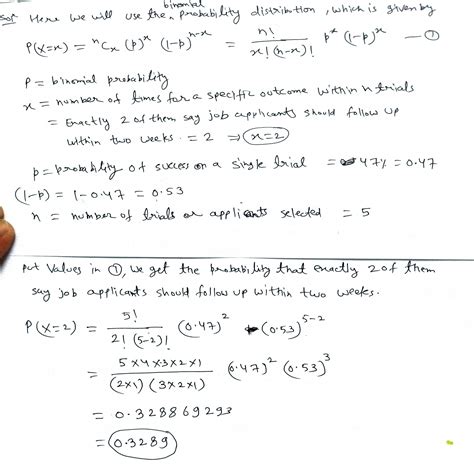 Sol Here we will use the binomial probability distribution, which is given by
P(X=x) = ⁿCₓ (p)ˣ (1-p)ⁿ⁻ˣ = n! / x!(n-x)! pˣ (1-p)ˣ — ①
P = binomial probability
x = number of times for a specific outcome within n trials
= Exactly 2 of them say job applicants should follow up
within two weeks = 2 ⇒ x=2
p = probability of success on a single trial = 47% = 0.47
(1-p) = 1-0.47 = 0.53
n = number of trials or applicants selected = 5
put values in ①, we get the probability that exactly 2 of them
say job applicants should follow up within two weeks.
P(X=2) = 5! / 2!(5-2)! (0.47)² (0.53)⁵⁻²
= 5×4×3×2×1 / (2×1)(3×2×1) (0.47)² (0.53)³
= 0.328869293
= 0.3289